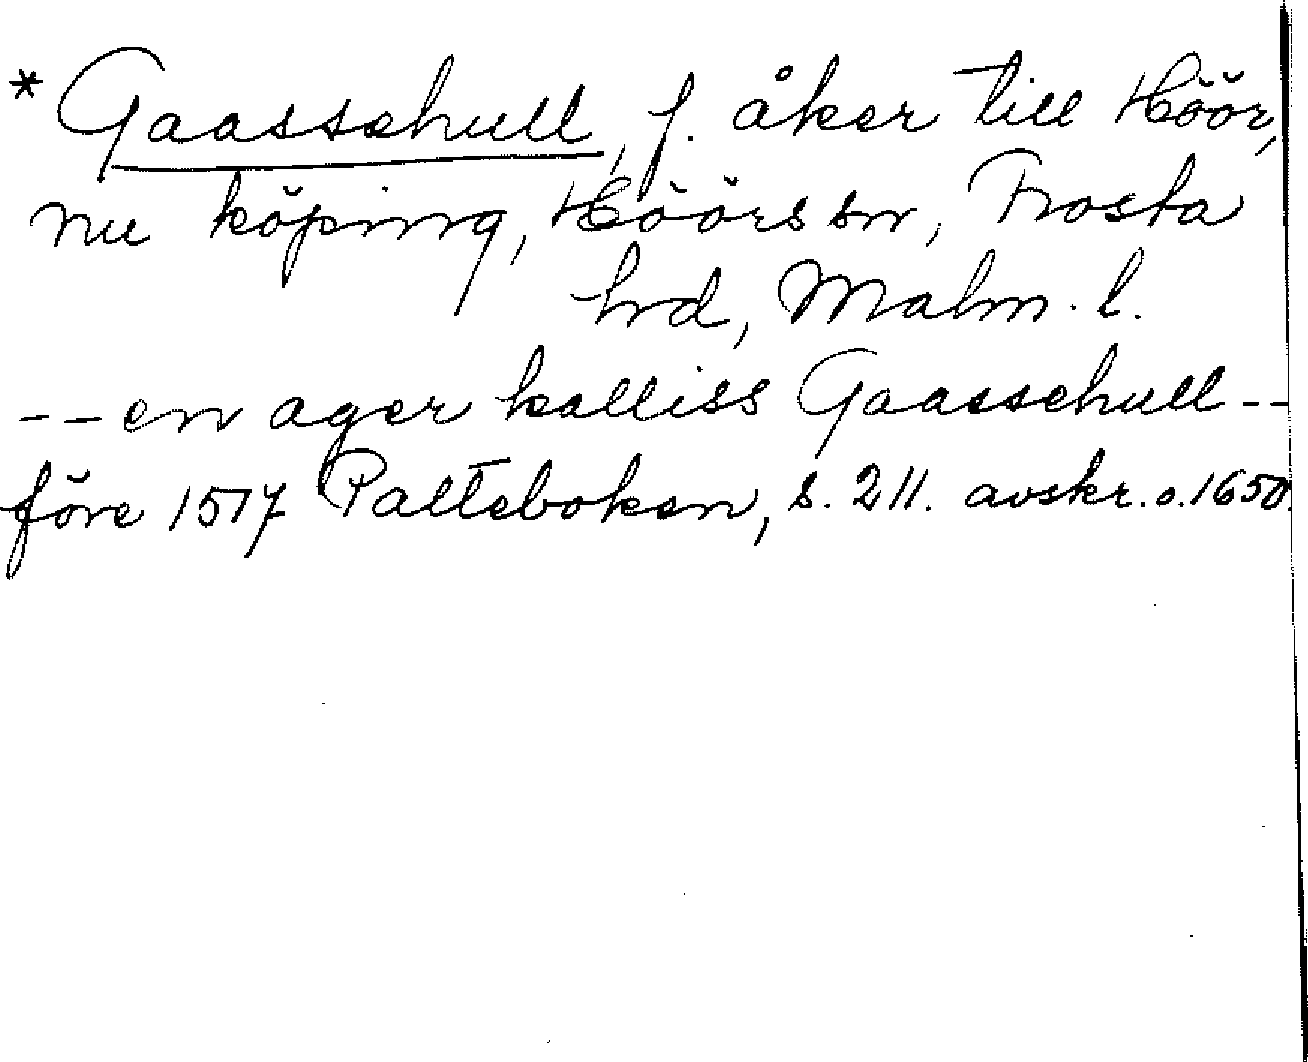 * Gaassehull, f. åker till Höör,
nu köping, Höörs sn, Frosta
hrd, Malm. l.
-- en ager kalliss Gaassehull --
före 1517 Palteboken, s. 211. avskr. o. 1650.